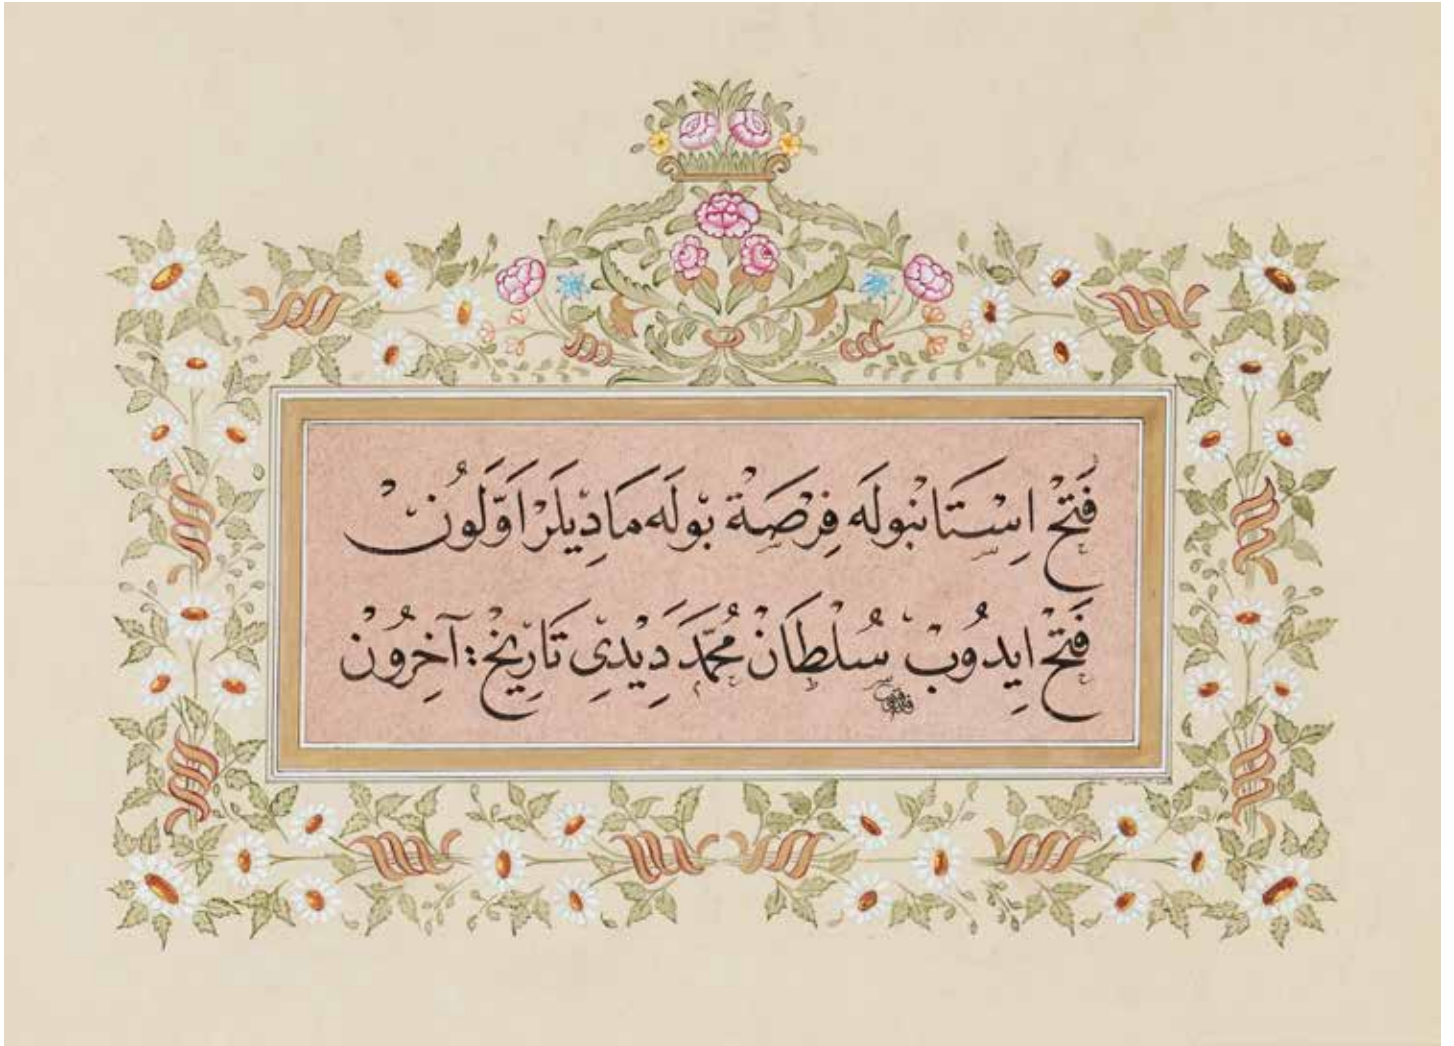 فَتْحِ اِسْتَانْبُولَه فِرْصَةْ بُولَه مَادِيلَرْ اَوَّلُونْ
فَتْحْ اِيدُوبْ سُلْطَانْ مُحَمَّدْ دِيدِى تَارِيخْ : آخِرُونْ